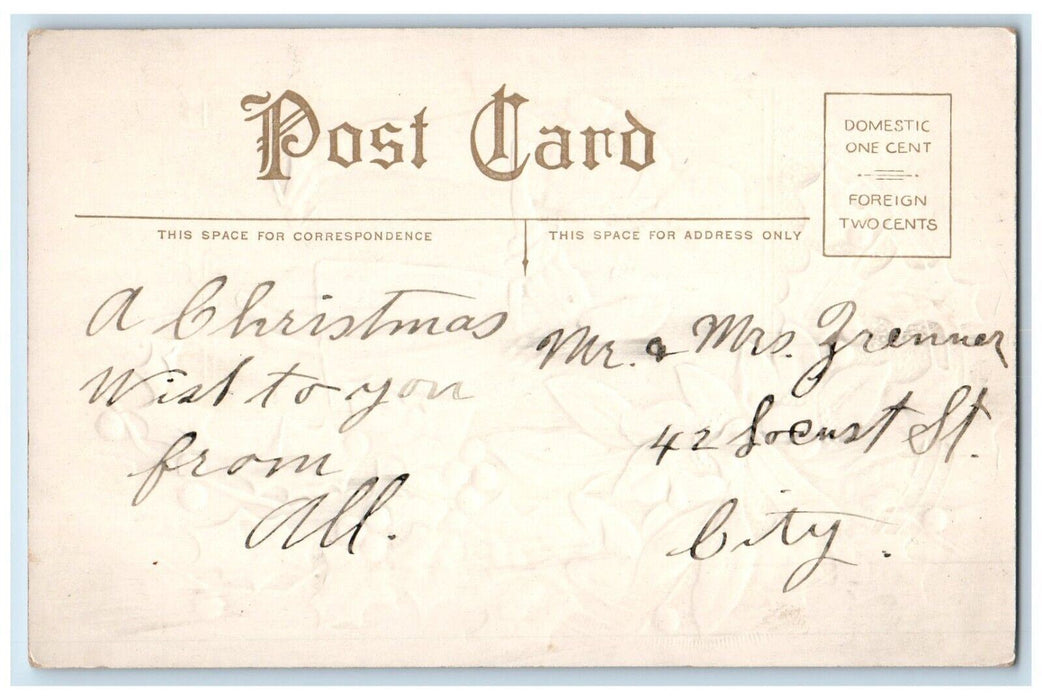 Post Card
DOMESTIC
ONE CENT
FOREIGN
TWO CENTS
THIS SPACE FOR CORRESPONDENCE
THIS SPACE FOR ADDRESS ONLY
A Christmas
Wish to you
from
All.
Mr. & Mrs. Zrenner
42 Locust St.
City.